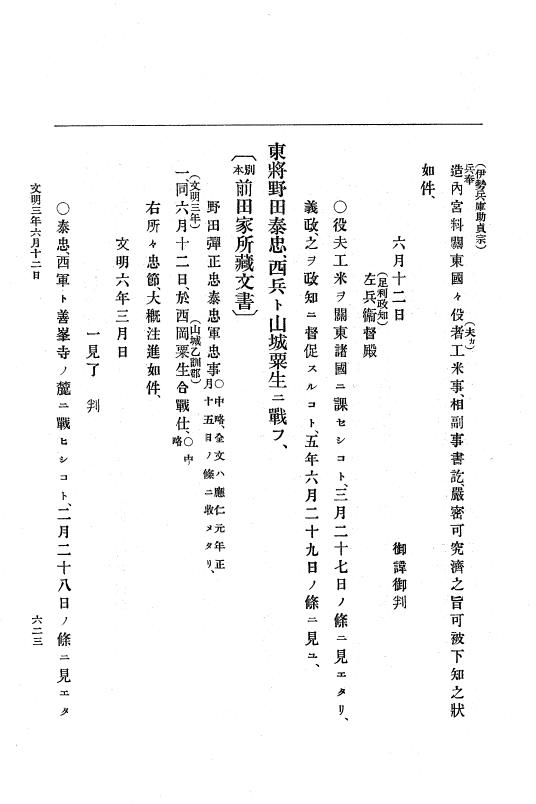 (伊勢兵庫助貞宗)
兵奉
造內宮料關東國々役者工米事、相副事書訖、嚴密可究濟之旨可被下知之狀
(夫カ)
如件、
六月十二日 御諱御判
(足利政知)
左兵衞督殿
○役夫工米ヲ關東諸國ニ課セシコト、三月二十七日ノ條ニ見エタリ、
義政、之ヲ政知ニ督促スルコト、五年六月二十九日ノ條ニ見ユ、
東將野田泰忠、西兵ト山城粟生ニ戰フ、
〔別本前田家所藏文書〕
野田彈正忠泰忠軍忠事○中略、全文ハ應仁元年正月十五日ノ條ニ收メタリ、
(文明三年)
(山城乙訓郡)
一、同六月十二日、於西岡粟生合戰仕、○中略
右所々忠節、大概注進如件、
文明六年三月日
一見了 判
○泰忠、西軍ト善峯寺ノ麓ニ戰ヒシコト、二月二十八日ノ條ニ見エタ
文明三年六月十二日 六二三